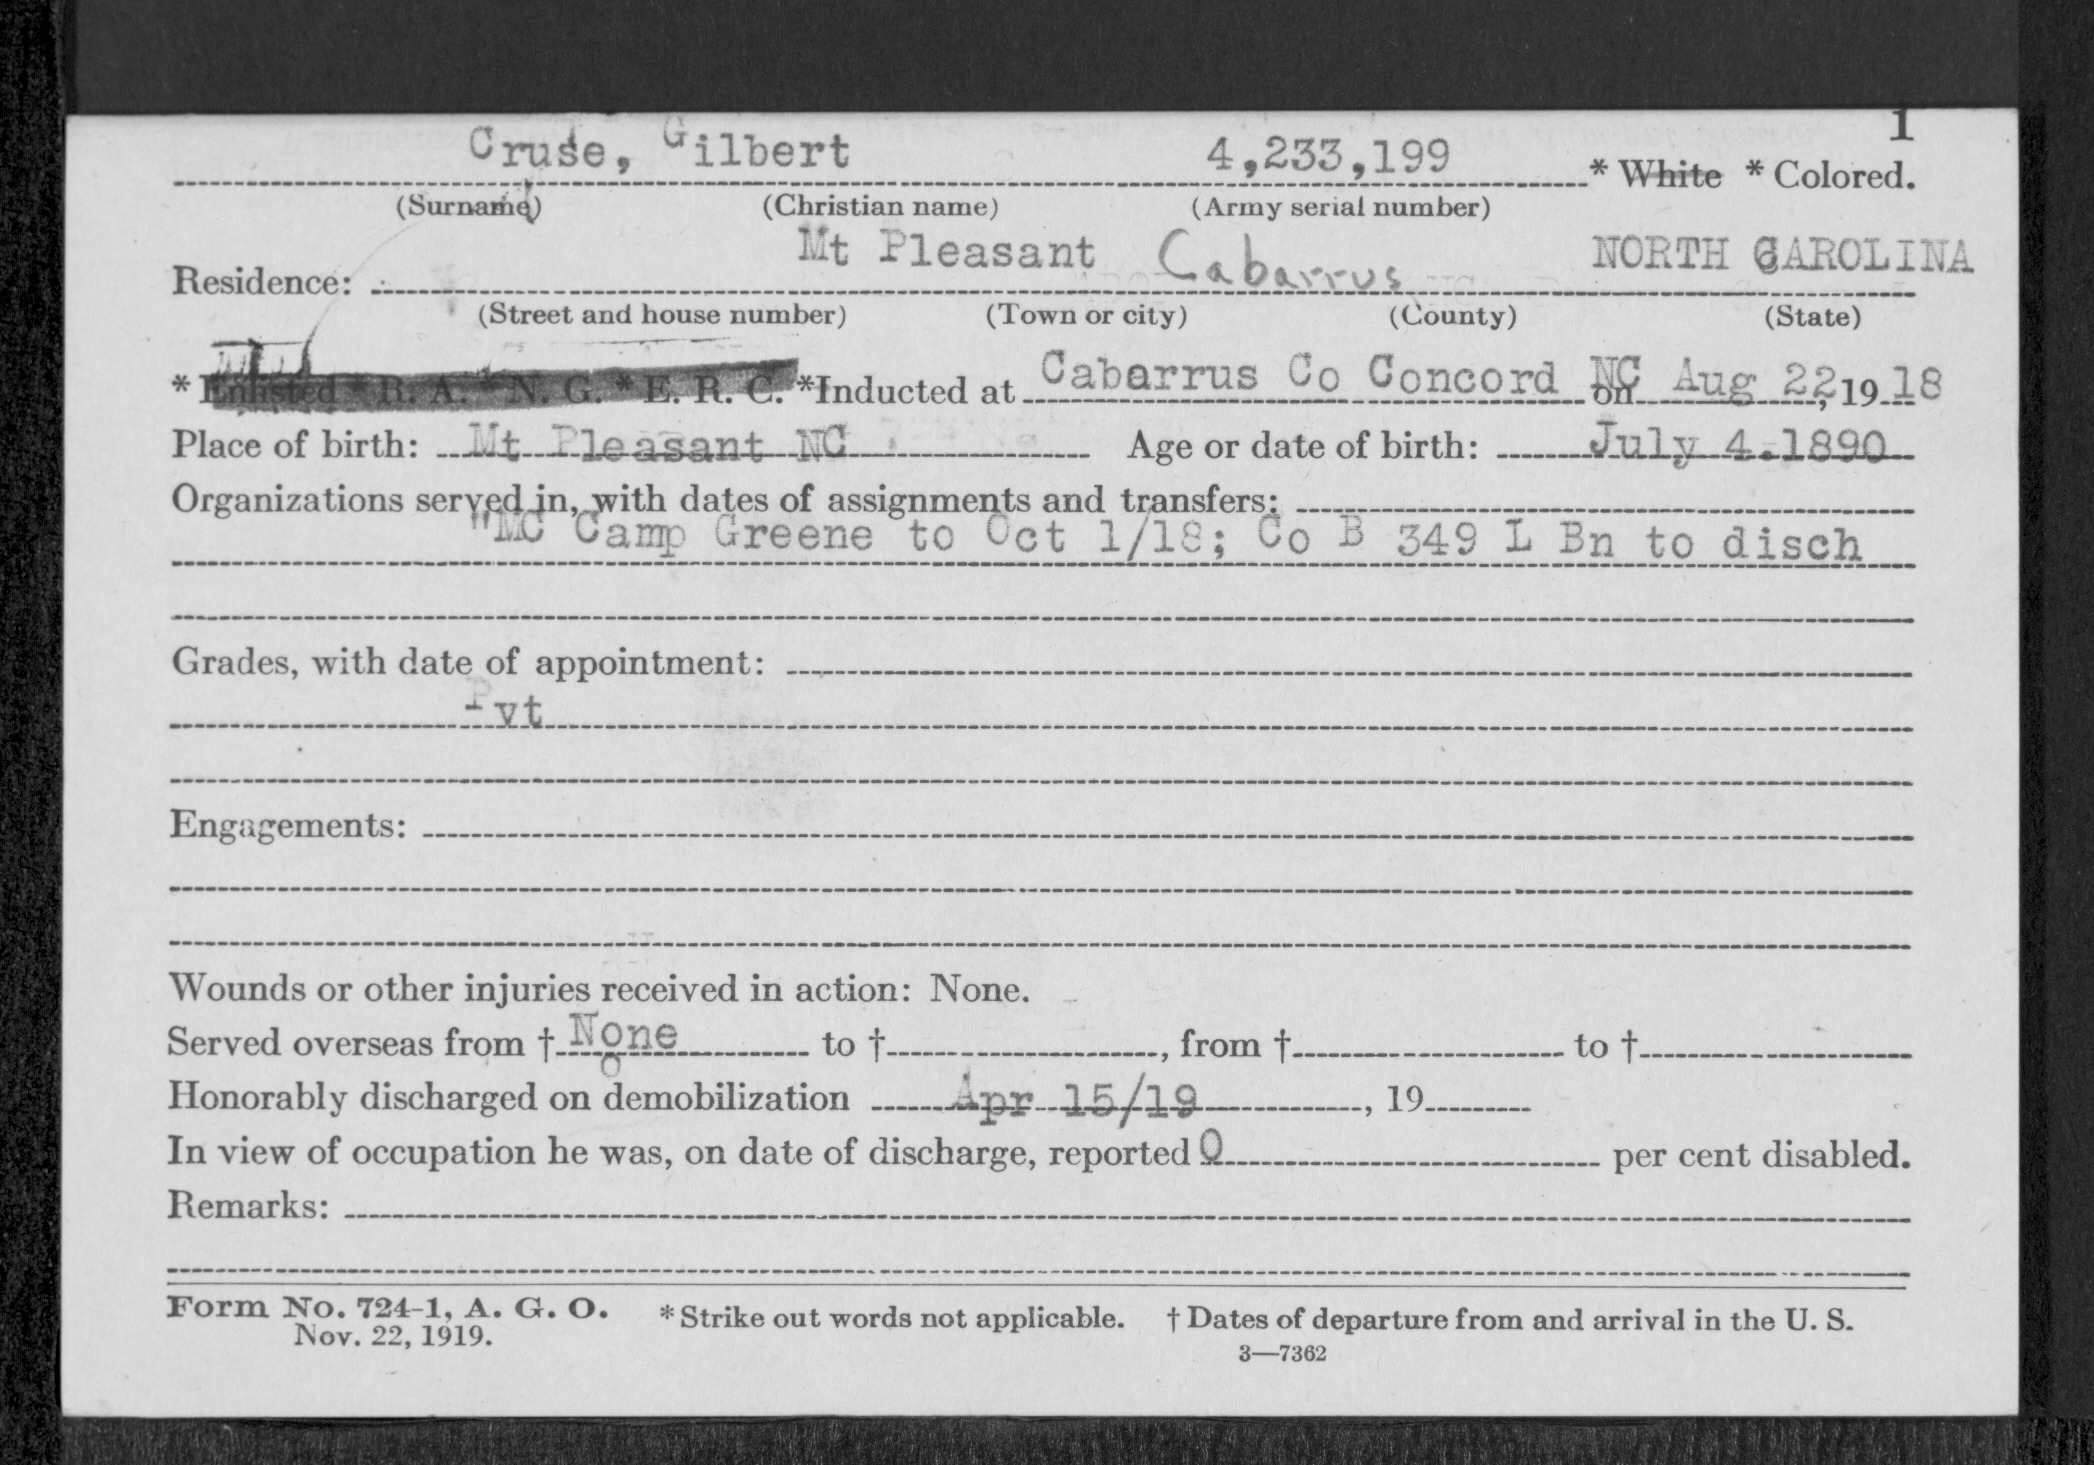 1
Cruse, Gilbert 4,233,199 * White * Colored.
(Surname) (Christian name) (Army serial number)
Mt Pleasant Cabarrus NORTH CAROLINA
Residence:
(Street and house number) (Town or city) (County) (State)
* Enlisted * R. A. * N. G. * E. R. C. *Inducted at Cabarrus Co Concord NC on Aug 22, 19 18
Place of birth: Mt Pleasant NC Age or date of birth: July 4.1890
Organizations served in, with dates of assignments and transfers:
"MC Camp Greene to Oct 1/18; Co B 349 L Bn to disch
Grades, with date of appointment:
Pvt
Engagements:
Wounds or other injuries received in action: None.
Served overseas from † None to †, from † to †
Honorably discharged on demobilization Apr 15/19, 19
In view of occupation he was, on date of discharge, reported 0 per cent disabled.
Remarks:
Form No. 724-1, A. G. O. * Strike out words not applicable. † Dates of departure from and arrival in the U. S.
Nov. 22, 1919.
3—7362